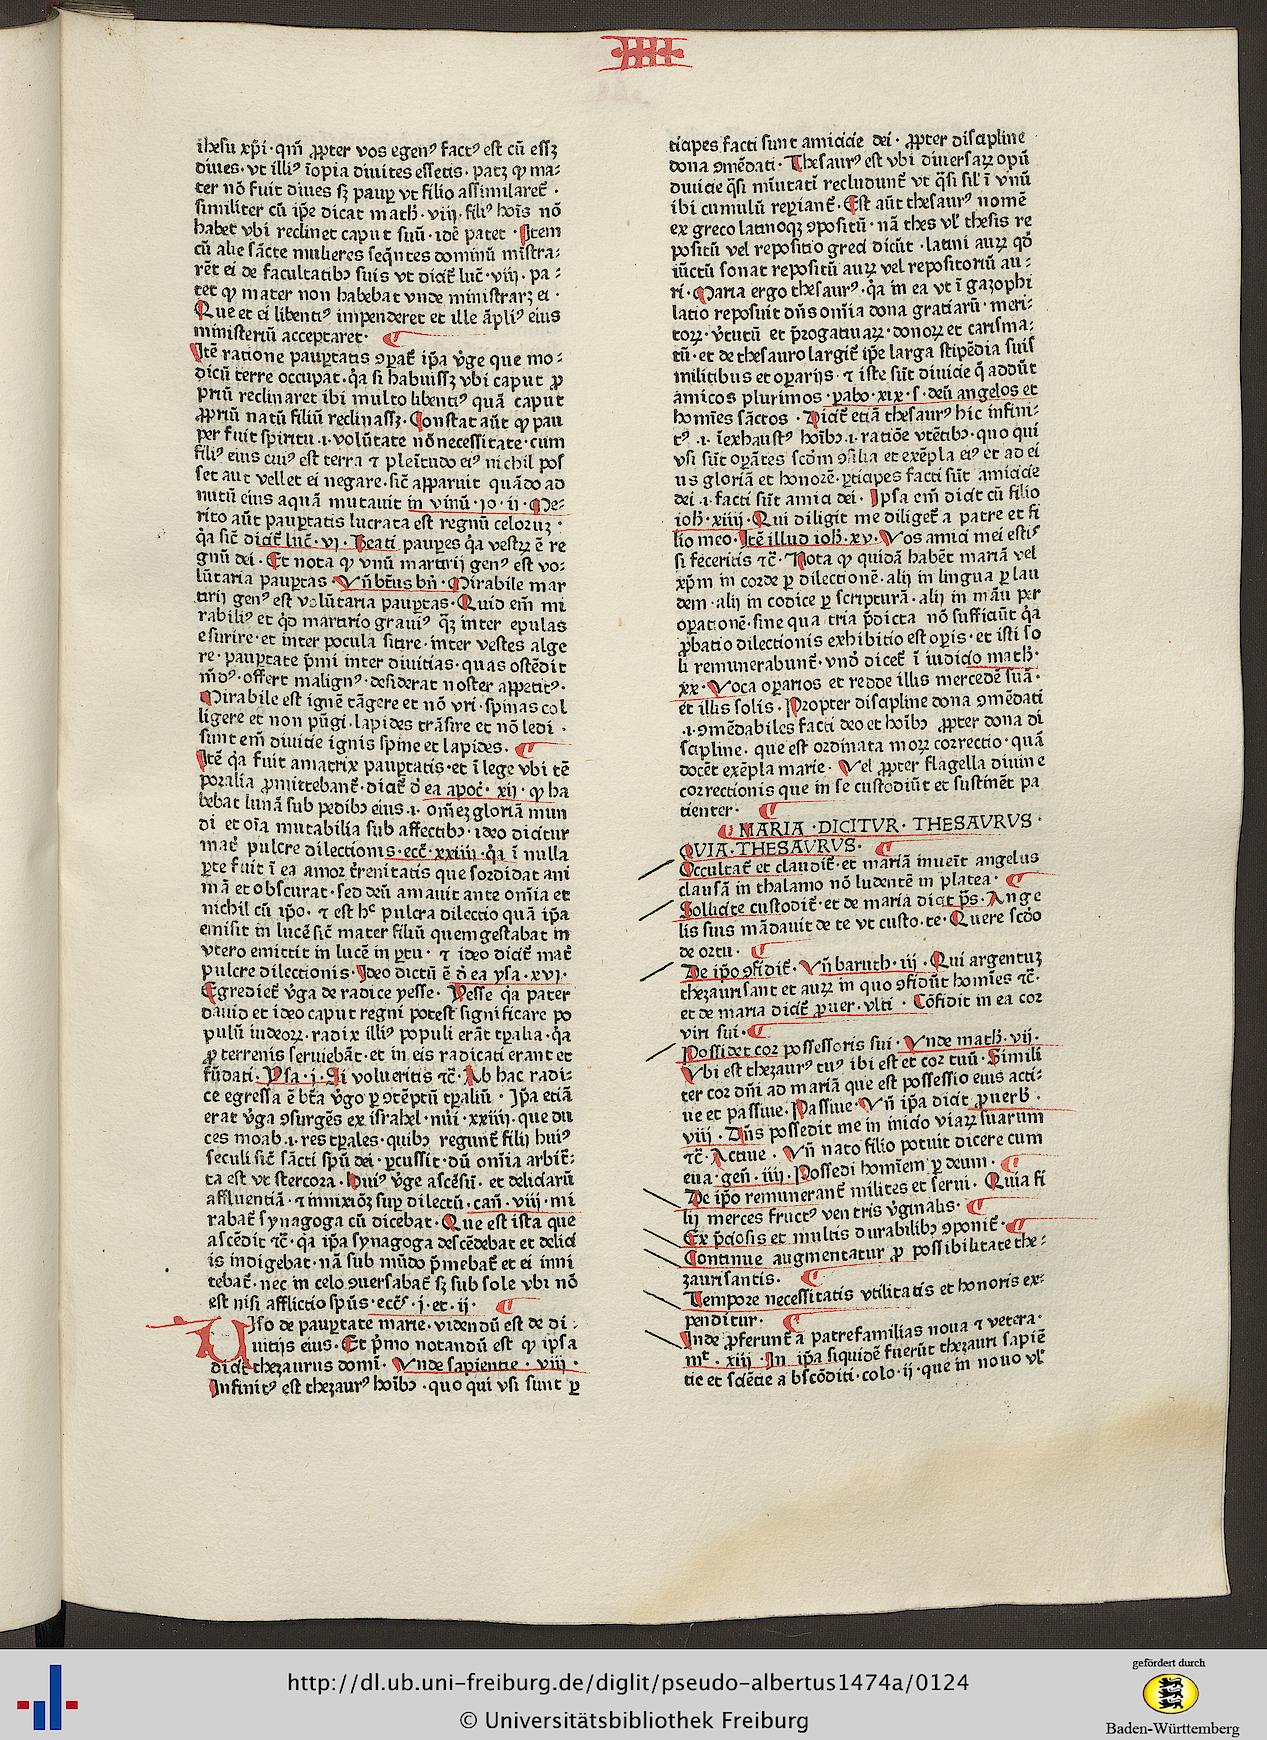 IIII
ihesu xp̄i· qm̄ ꝓpter vos egenꝰ factꝰ est cū essꝫ
diues· vt illiꝰ īopia diuites essetis· patꝫ ꝙ ma⸗
ter nō fuit diues sꝫ paup̲ vt filio assimilaret̄ ·
similiter cū ip̄e dicat math̄· viij· filiꝰ hoīs nō
habet vbi reclinet caput suū· idē patet · Item
cū alie sācte mulieres seq̄ntes dominū mīstra⸗
rēt ei de facultatibꝫ suis vt dicit̄ luc̄· viij· pa⸗
tet ꝙ mater non habebat vnde ministrarꝫ ei ·
Que et ei libentiꝰ impenderet et ille āpliꝰ eius
ministeriū acceptaret·
Itē ratione paup̲tatis ꝯparat̄ ip̄a v̄ge que mo⸗
dicū terre occupat· q̄a si habuissꝫ vbi caput ꝓ
priū reclinaret ibi multo libentiꝰ quā caput
ꝓpriū natū filiū reclinassꝫ· Constat aūt ꝙ pau
per fuit spiritu ·i· volūtate nō necessitate· cum
filiꝰ eius cuiꝰ est terra ⁊ pleītudo eiꝰ nichil pos
set aut vellet ei negare· sic̄ apparuit quādo ad
nutū eius aquā mutauit in vinū· io· ij· Me⸗
rito aūt paup̲tatis lucrata est regnū celoruꝫ ·
q̄a sic̄ dicit̄ luc̄· vj · Beati paup̲es q̄a vestꝝ ē re
gnū dei· Et nota ꝙ vnū martirij genꝰ est vo⸗
lūtaria paup̲tas · Vn̄ btūs bn̄ · Mirabile mar
tirij genꝰ est volūtaria paup̲tas· Quid em̄ mi
rabiliꝰ et q̄d martirio grauiꝰ q̄ꝫ inter epulas
esurire· et inter pocula sitire· inter vestes alge
re· paup̲tate p̄mi inter diuitias· quas ostēdit
m̄dꝰ· offert malignꝰ· desiderat noster appetitꝰ·
Mirabile est ignē tāgere et nō vri· spinas col
ligere et non pūgi· lapides trāsire et nō ledi ·
sunt em̄ diuitie ignis spine et lapides·
Itē q̄a fuit amatrix paup̲tatis· et ī lege vbi tē
poralia ꝓmittebant̄· dicit̄ d̄ ea apoc̄· xij· ꝙ ha
bebat lunā sub pedibꝫ eius ·i· om̄eꝫ gloriā mun
di et oīa mutabilia sub affectibꝫ · ideo dicitur
mat̄ pulcre dilectionis· ecc̄· xxiiij· q̄a ī nulla
p̲te fuit ī ea amor t̄renitatis que sordidat ani
mā et obscurat· sed deū amauit ante om̄ia et
nichil cū ip̄o· ⁊ est hᶜ pulcra dilectio quā ip̄a
emisit in lucē sic̄ mater filiū quem gestabat in
vtero emittit in lucē in p̲tu· ⁊ ideo dicit̄ mat̄
pulcre dilectionis· Ideo dictū ē d̄ ea ysa· xvj·
Egrediet̄ v̄ga de radice yesse· Yesse q̄a pater
dauid et ideo caput regni potest significare po
pulū iudeoꝝ· radix illiꝰ populi erāt tp̄alia· q̄a
ꝓ terrenis seruiebāt· et in eis radicati erant et
fūdati· Ysa· j· Si volueritis ⁊c̄· Ab hac radi⸗
ce egressa ē btā v̄go p̲ ꝯtēptū tp̄aliū · Ip̄a etiā
erat v̄ga ꝯsurgēs ex israhel· nūi · xxiiij· que du
ces moab ·i· res tp̄ales· quibꝫ regunt̄ filij huiꝰ
seculi sic̄ sācti spū dei· p̲cussit· dū om̄ia arbit̄⸗
ta est vt stercora· Huiꝰ v̄ge ascēsū· et deliciarū
affluentiā· ⁊ innixiōꝫ sup̲ dilectū· can̄· viij· mi
rabat̄ synagoga cū dicebat· Que est ista que
ascēdit ⁊c̄· q̄a ip̄a synagoga descēdebat et delici
is indigebat· nā sub mūdo p̄mebat̄ et ei inni
tebat̄· nec in celo ꝯuersabat̄ sꝫ sub sole vbi nō
est nisi afflictio spūs· ecc̄s· j· et· ij·
Viso de paup̲tate marie· videndū est de di⸗
uitijs eius· Et p̄mo notandū est ꝙ ipsa
dicit̄ thezaurus domī· Vnde sapientie · viij ·
Infinitꝰ est thezaurꝰ hoībꝫ · quo qui vsi sunt p̲
ticipes facti sunt amicicie dei · ꝓpter discipline
dona ꝯmēdati· Thesaurꝰ est vbi diuersaꝝ opū
diuicie q̄si mīutatī recludunt̄ vt q̄si sil̄ ī vnū
ibi cumulū rep̲iant̄· Est aūt thesaurꝰ nomē
ex greco latinoqꝫ ꝯpositū· nā thes vl̄ thesis re
positū vel repositio greci dicūt · latini auꝝ qd̄
iūctū sonat repositū auꝝ vel repositoriū au⸗
ri· Maria ergo thesaurꝰ· q̄a in ea vt ī gazophi
latio reposuit dn̄s om̄ia dona gratiarū· meri⸗
toꝝ· v̄tutū et p̄rogatiuaꝝ· donoꝝ et carisma⸗
tū· et de thesauro largit̄ ip̄e larga stipēdia suis
militibus et op̲arijs· ⁊ iste sūt diuicie q̄ addūt
amicos plurimos · pabo· xix· s· deū angelos et
homīes sāctos · Dicit̄ etiā thesaurꝰ hic infini⸗
tꝰ ·i· īexhaustꝰ hoībꝫ ·i· ratiōe vtētibꝫ· quo qui
vsi sūt op̲ātes scdm̄ ꝯsilia et exēpla eiꝰ et ad ei
us gloriā et honorē· p̲ticipes facti sūt amicicie
dei ·i· facti sūt amici dei· Ipsa em̄ dicit cū filio
ioh̄· xiiij· Qui diligit me diliget̄ a patre et fi
lio meo· Itē illud ioh̄· xv· Vos amici mei estꝭ
si feceritis ⁊c̄· Nota ꝙ quidā habēt mariā vel
xp̄m in corde p̲ dilectionē· alij in lingua p̲ lau
dem· alij in codice p̲ scripturā· alij in māu per
op̲ationē· sine qua tria p̄dicta nō sufficiūt q̄a
ꝓbatio dilectionis exhibitio est op̲is· et isti so
li remunerabunt̄· vnō dicet̄ ī iudicio math̄·
xx· Voca op̲arios et redde illis mercedē suā·
et illis solis· Propter discipline dona ꝯmēdati
·i· ꝯmēdabiles facti deo et hoībꝫ ꝓpter dona di
scipline· que est ordinata moꝝ correctio· quā
docēt exēpla marie· Vel ꝓpter flagella diuine
correctionis que in se custodiūt et sustinēt pa
tienter·
MARIA · DICITVR · THESAVRVS ·
QVIA · THESAVRVS·
Occultat̄ et claudit̄· et mariā inueīt angelus
clausā in thalamo nō ludentē in platea·
Sollicite custodit̄· et de maria dicit p̄s· Ange
lis suis mādauit de te vt custo· te· Quere scdō
de ortu·
De ip̄o ꝯfidit̄· Vn̄ baruth· iij· Qui argentuꝫ
thezaurisant et auꝝ in quo ꝯfidūt homīes ⁊c̄·
et de maria dicit̄ ꝓuer· vlti · Cōfidit in ea cor
viri sui·
Possidet cor possessoris sui· Vnde math̄· vij·
Vbi est thezaurꝰ tuꝰ ibi est et cor tuū· Simili
ter cor dn̄i ad mariā que est possessio eius acti⸗
ue et passiue· Passiue· Vn̄ ip̄a dicit ꝓuerb̄·
viij· Dn̄s possedit me in inicio viaꝝ suarum
⁊c̄· Actiue · Vn̄ nato filio potuit dicere cum
eua· gen̄· iiij· Possedi homīem p̲ deum·
De ip̄o remunerant̄ milites et serui· Quia fi
lij merces fructꝰ ventris v̄ginalis·
Ex p̄ciosis et multis durabilibꝫ ꝯponit̄·
Continue augmentatur ꝓ possibilitate the⸗
zaurisantis·
Tempore necessitatis vtilitatis et honoris ex⸗
penditur·
Inde ꝓferunt̄ a patrefamilias noua ⁊ vetera·
mᵗ· xiij· In ip̄a siquidē fuerūt thezauri sapiē
tie et sciētie absc̄oditi· colo· ij· que in nouo vl̄
http://dl.ub.uni-freiburg.de/diglit/pseudo-albertus1474a/0124
© Universitätsbibliothek Freiburg
gefördert durch
Baden-Württemberg